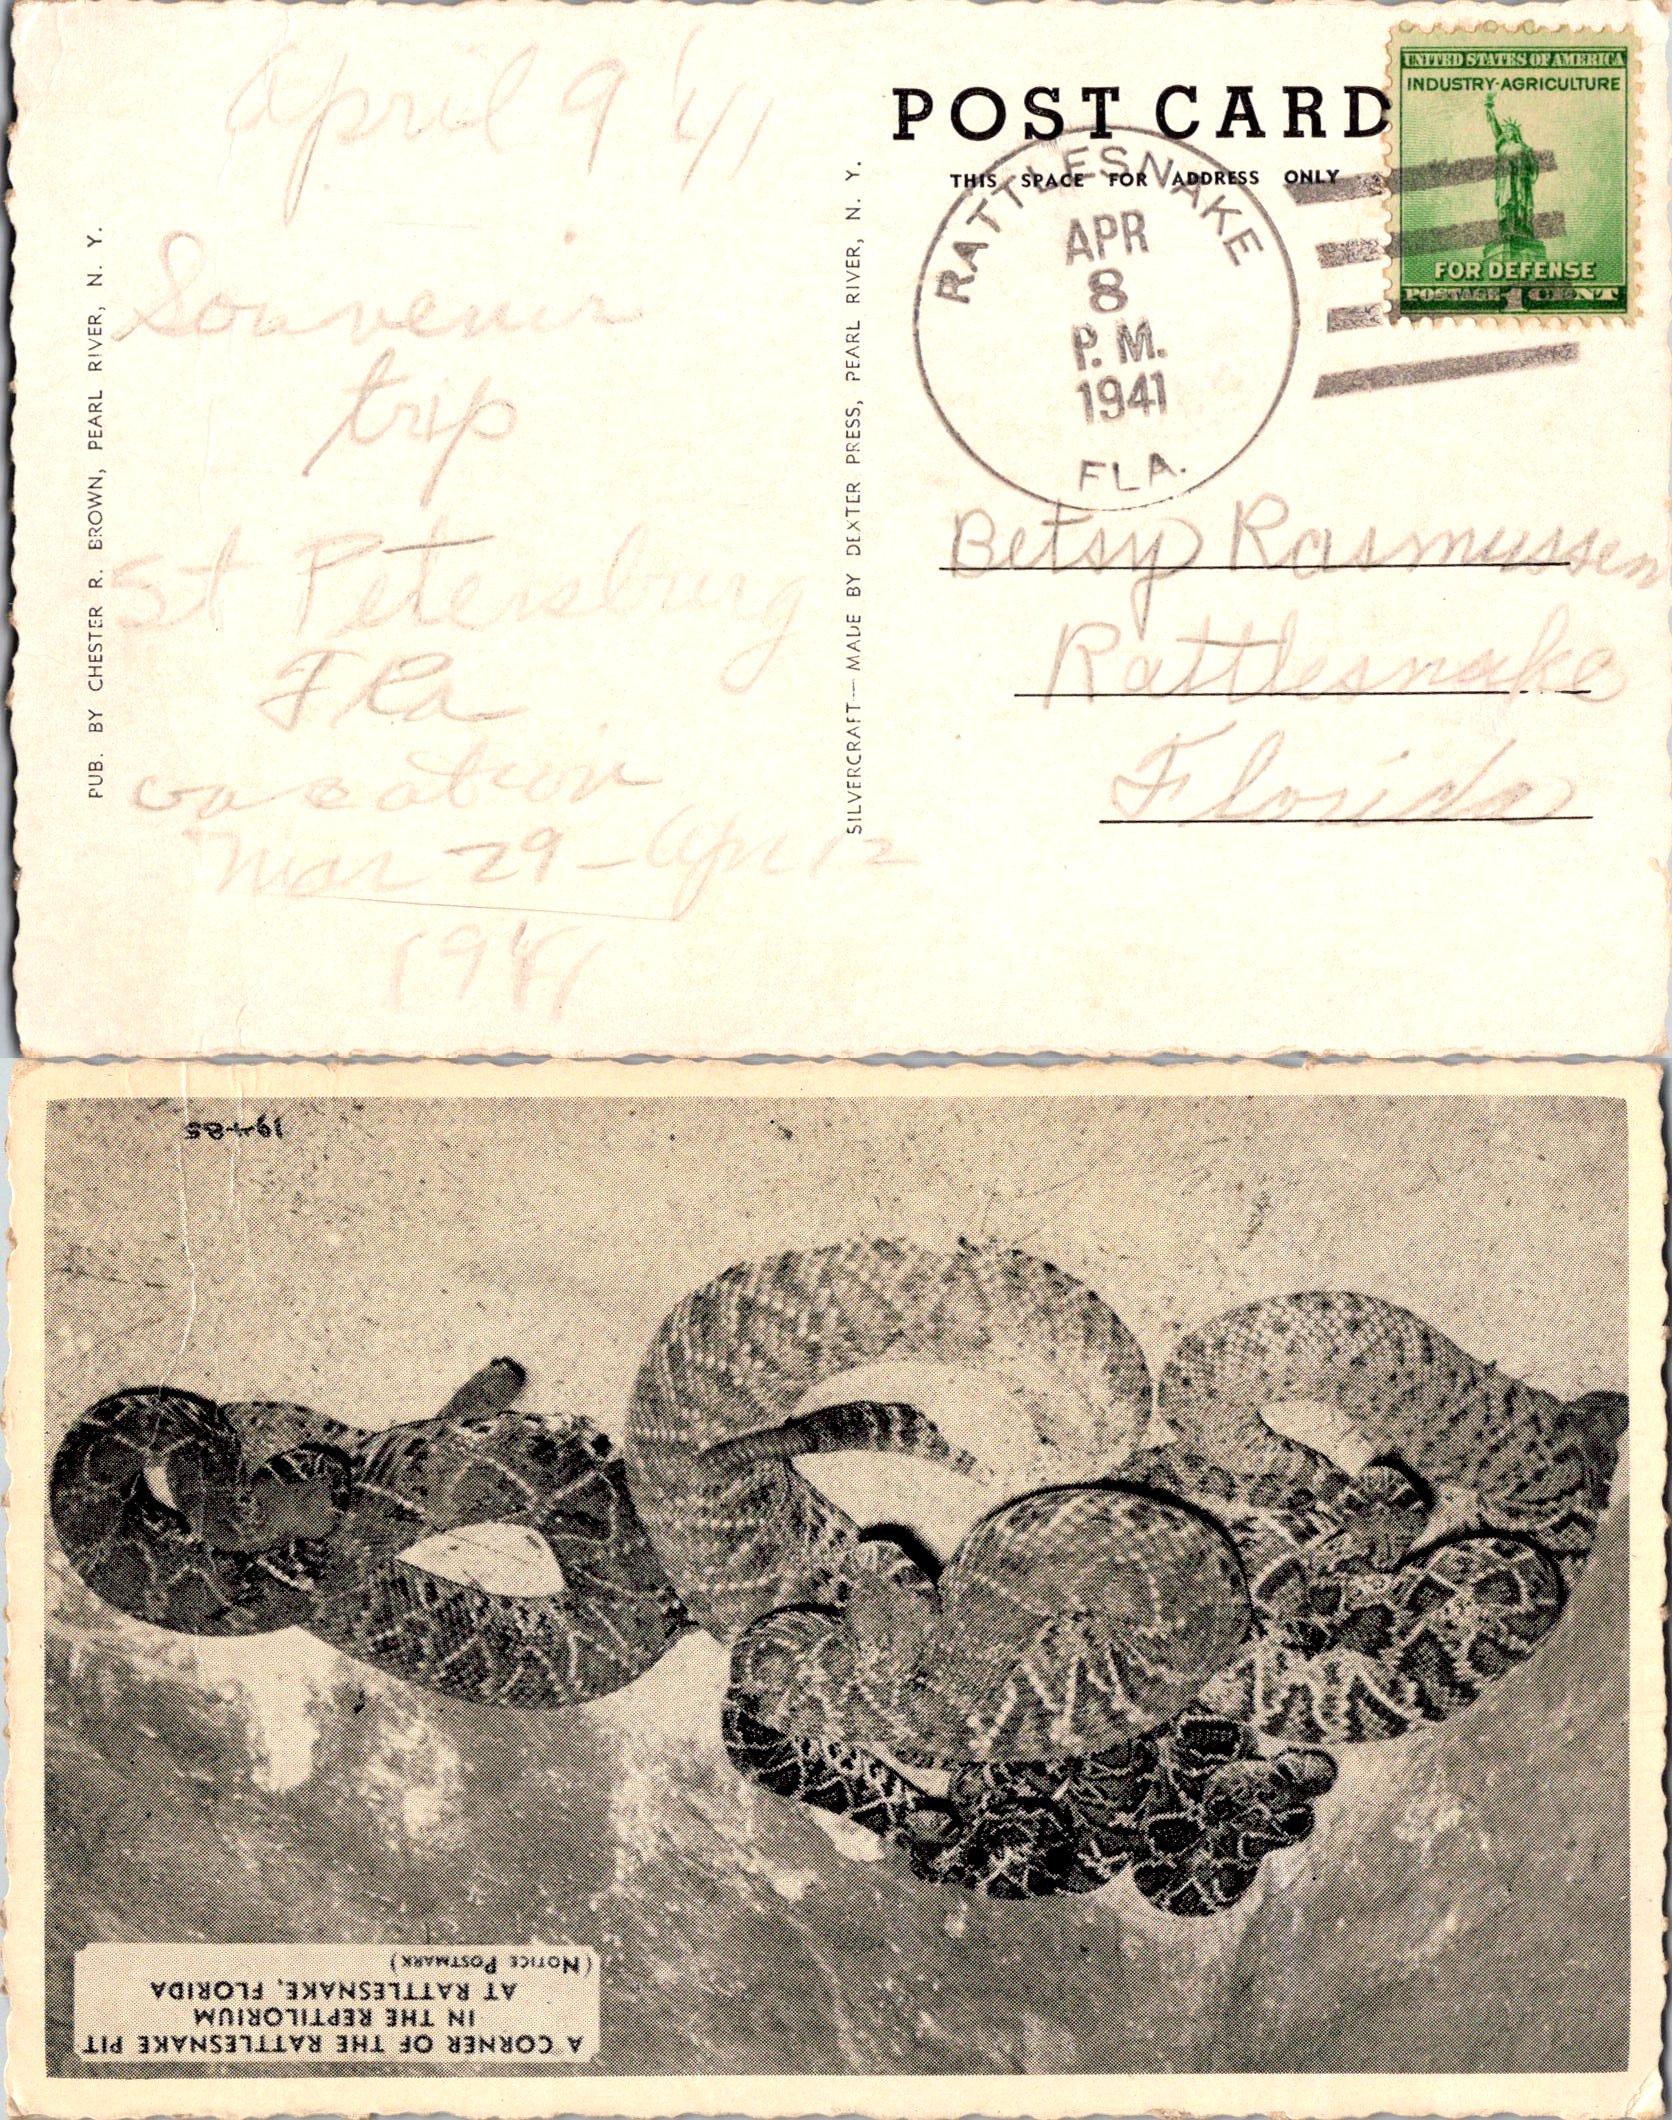 April 9 '41
Souvenir
trip
St Petersburg
Fla
vacation
Mar 29 - Apr 12
1941
PUB. BY CHESTER R. BROWN, PEARL RIVER, N. Y.
SILVERCRAFT — MADE BY DEXTER PRESS, PEARL RIVER, N. Y.
POST CARD
THIS SPACE FOR ADDRESS ONLY
UNITED STATES OF AMERICA
INDUSTRY-AGRICULTURE
FOR DEFENSE
POSTAGE 1 CENT
RATTLESNAKE
APR
8
P. M.
1941
FLA.
Betsy Rasmussen
Rattlesnake
Florida
A CORNER OF THE RATTLESNAKE PIT
IN THE REPTILORIUM
AT RATTLESNAKE, FLORIDA
(NOTICE POSTMARK)